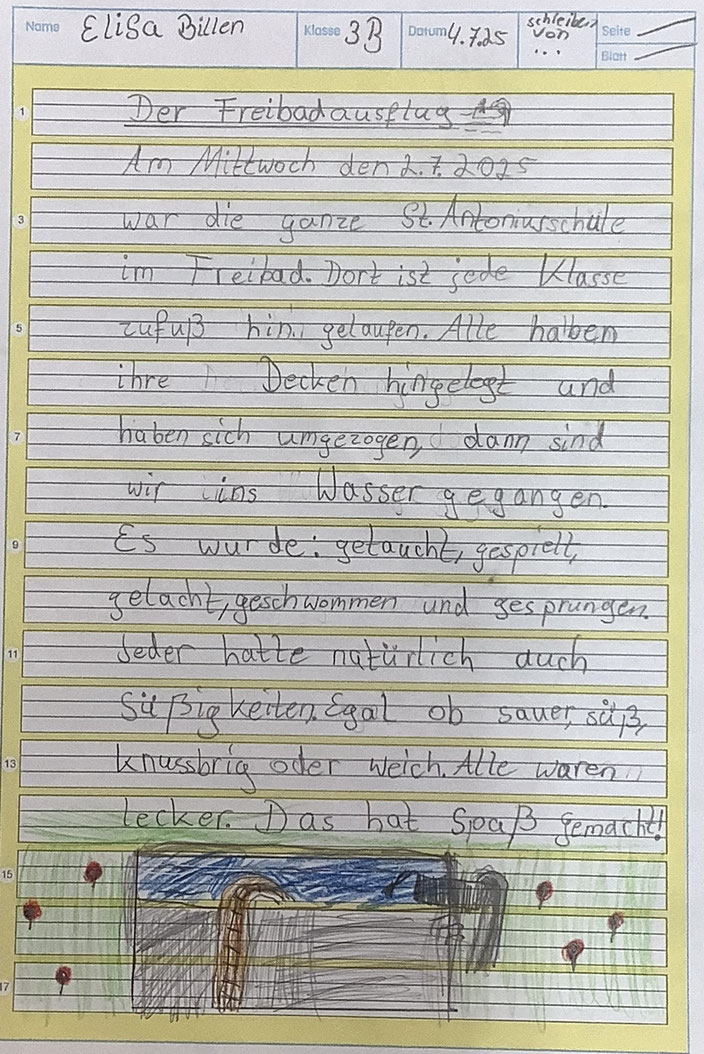 Name Elisa Billen Klasse 3B Datum 4.7.25 schreiben von ... Seite
Blatt
1 Der Freibadausflug
Am Mittwoch den 2.7.2025
3 war die ganze St. Antoniusschule
im Freibad. Dort ist jede Klasse
5 zufuß hin gelaufen. Alle haben
ihre Decken hingelegt und
7 haben sich umgezogen, dann sind
wir ins Wasser gegangen.
9 Es wurde: getaucht, gespielt,
gelacht, geschwommen und gesprungen.
11 Jeder hatte natürlich auch
Süßigkeiten. Egal ob sauer, süß,
13 knussbrig oder weich. Alle waren
lecker. Das hat Spaß gemacht!
15
17